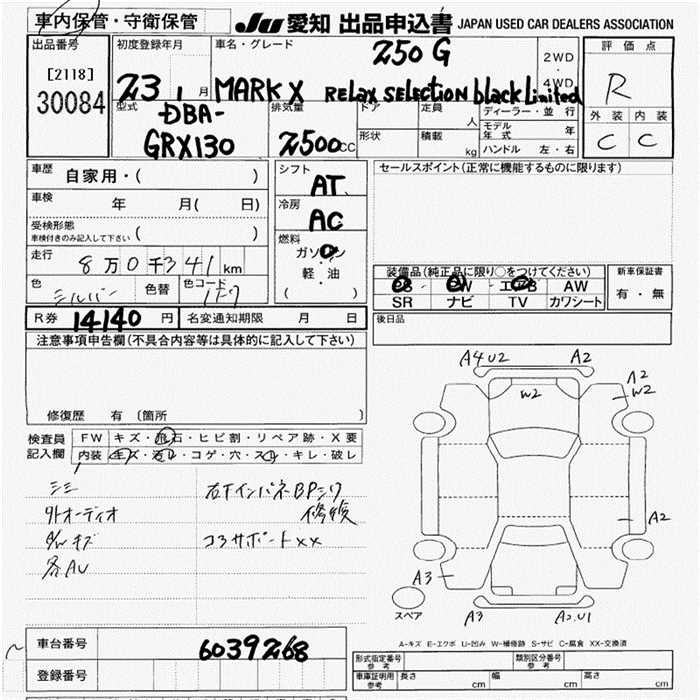 車内保管・守衛保管
JU 愛知 出品申込書 JAPAN USED CAR DEALERS ASSOCIATION
出品番号
[2118]
30084
初度登録年月
23 1 月
車名・グレード
250G
MARK X RELAX SELECTION black Limited
2WD
・
4WD
評価点
R
外装 内装
C C
型式
DBA-
GRX130
排気量
2500cc
ドア
定員 人
形状
積載 kg
ディーラー・並行
モデル年式 年
ハンドル 左・右
車歴 自家用・( )
車検 年 月( 日)
受検形態
車検付きのみ記入して下さい ( )
走行 8万0千341km
色 シルバー 色替 色コード 1F7
シフト
AT
冷房
AC
燃料
ガソリン
・
軽・油
( )
セールスポイント(正常に機能するものに限ります)
装備品(純正品に限り○をつけてください)
PS・PW・エアB AW
SR ナビ TV カワシート
新車保証書
有・無
R券 14140 円 名変通知期限 月 日
後日品
注意事項申告欄(不具合内容等は具体的に記入して下さい)
修復歴 有 〔箇所 〕
検査員
記入欄
FW キズ・飛石・ヒビ割・リペア跡・X要
内装 キズ・汚レ・コゲ・穴・スレ・キレ・破レ
シミ
外オーディオ
ダッシュキズ
各AU
右FインパネBPシワ
修復
コアサポートXX
A4 U2 A2
W2
A2
W2
A2
A3
スペア
A3 A2.U1
A-キズ E-エクボ U-凹み W-補修跡 S-サビ C-腐食 XX-交換済
車台番号 6039268
登録番号
形式指定番号
参考
類別区分番号
参考
車庫証明用
参考
長さ cm 幅 cm 高さ cm